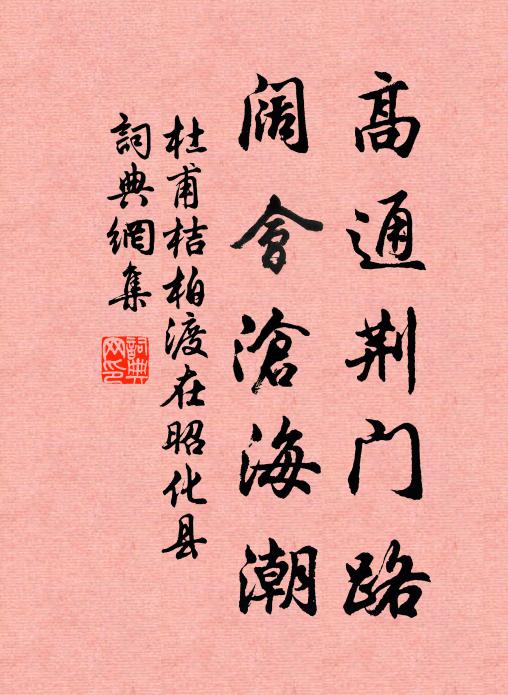 高通荆门路
阔會滄海潮
杜甫桔柏渡在昭化县
詞典網集
詞典网印